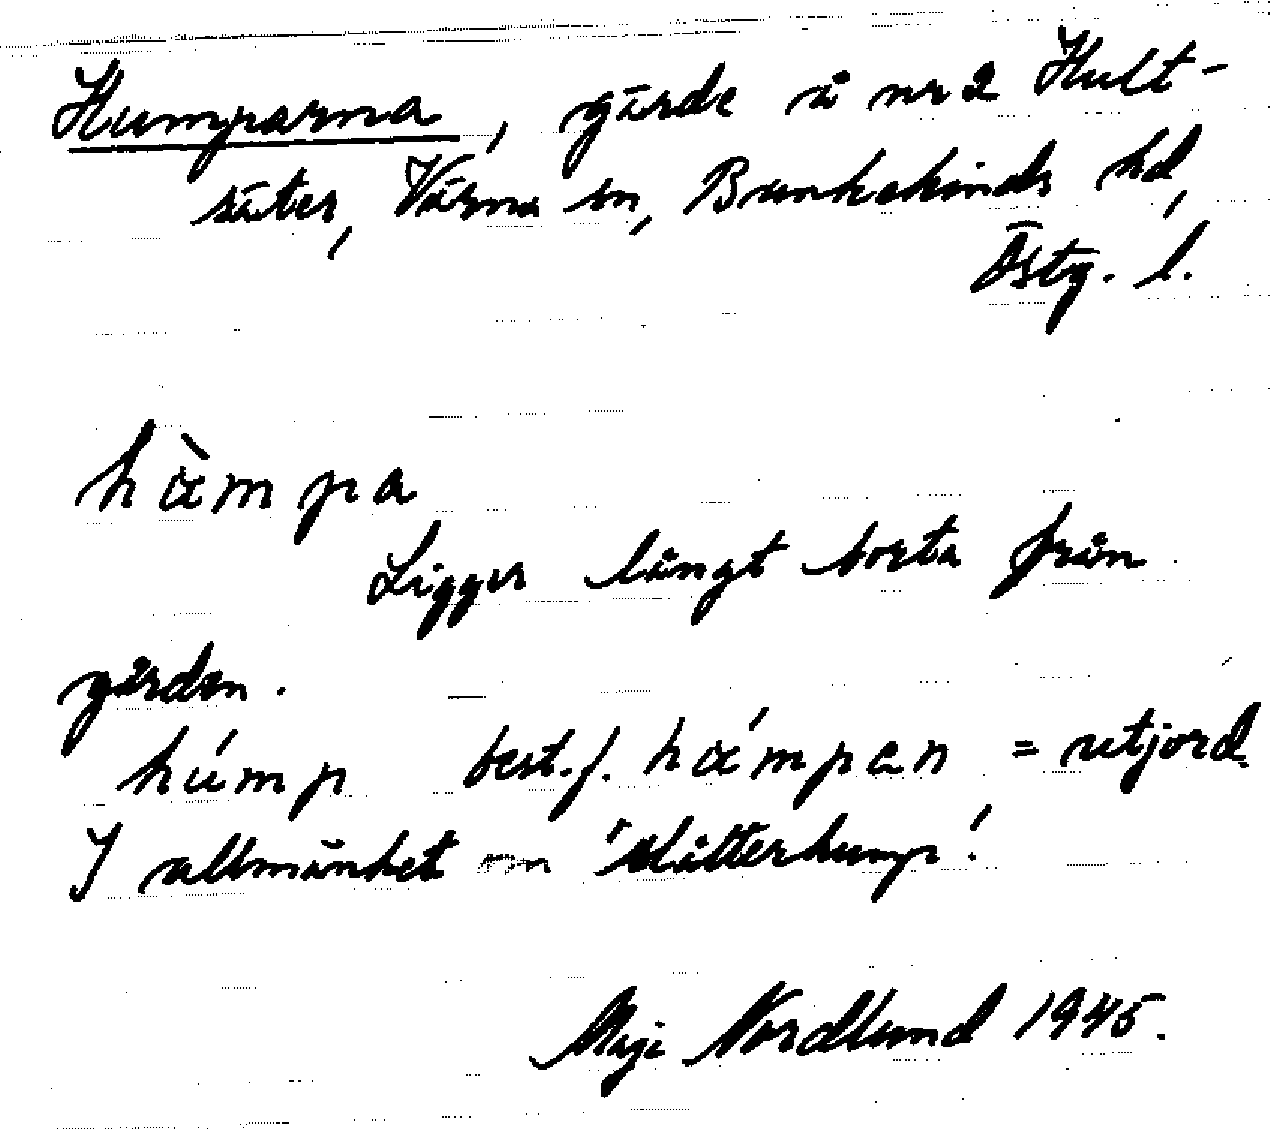 Humparna, gärde å nr 2 Hult-
säter, Värna sn, Bankekinds hd,
Östg. l.
hɑ̀mpa
Ligger långt borta från
gården.
húmp best.f. hɑ́mpen = utjord
I allmänhet om 'slåtterhump'.
Maji Nordlund 1945.